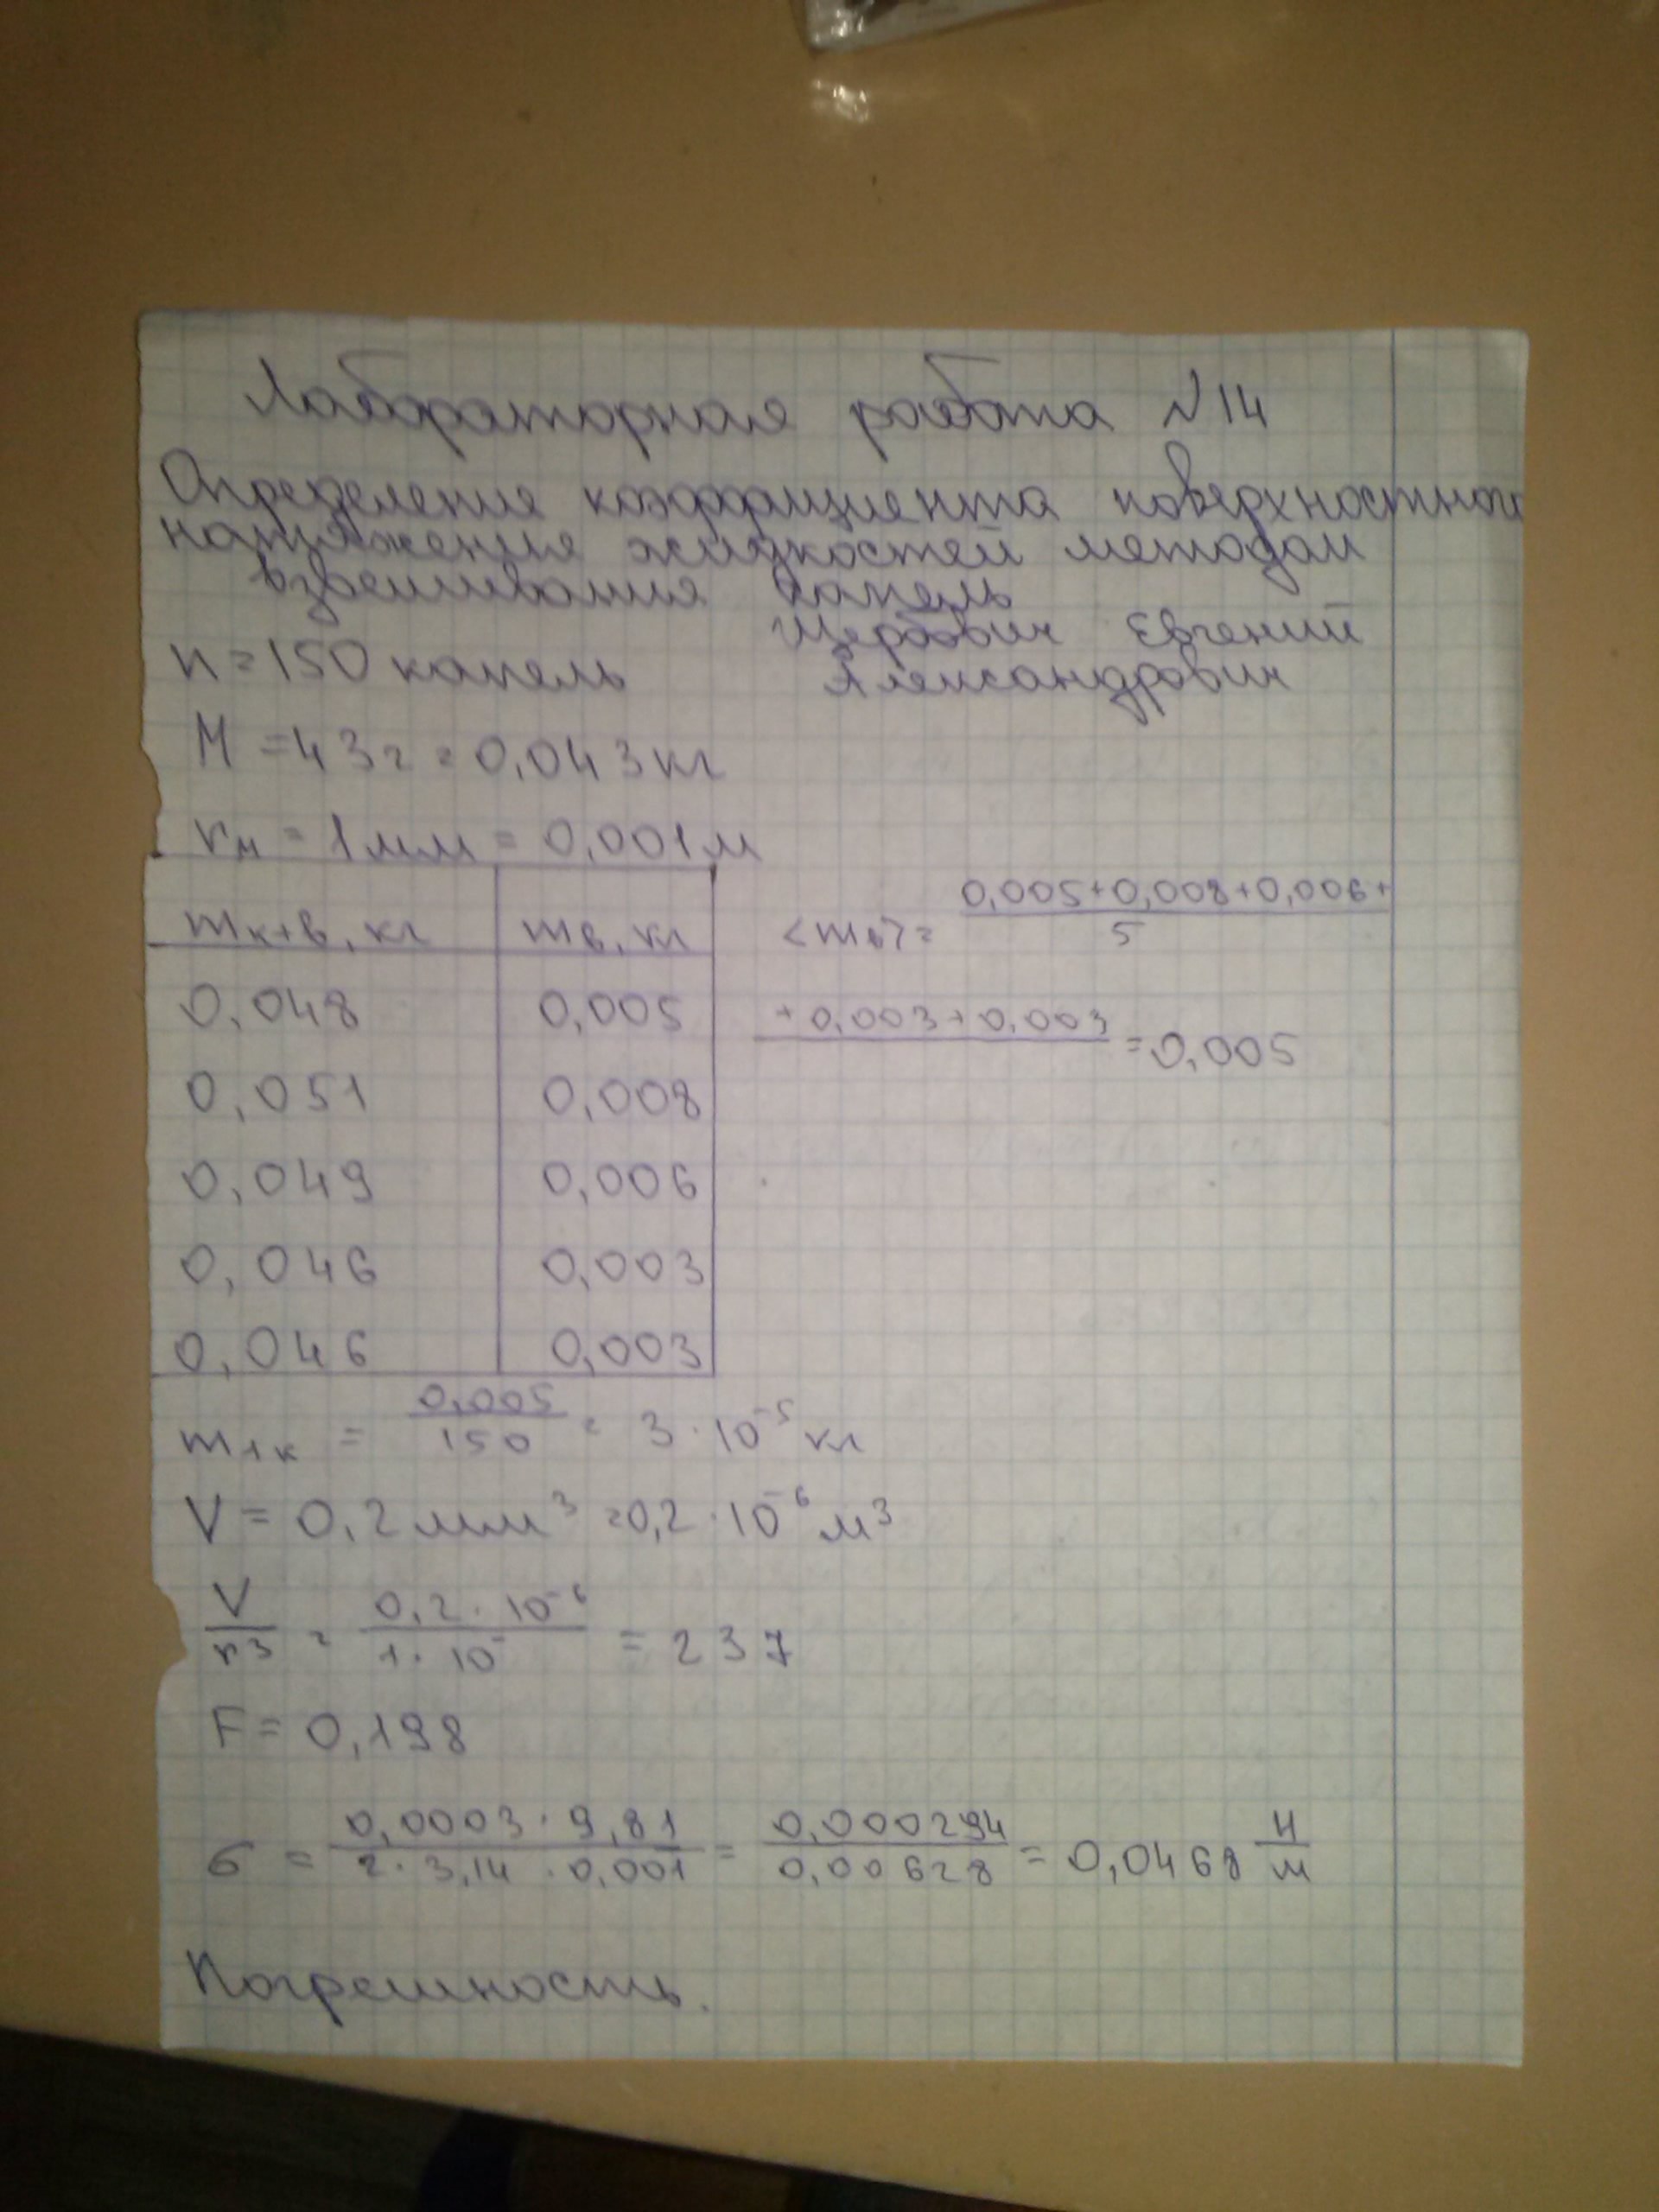 Лабораторная работа №14
Определение коэффициента поверхностного
напряжения жидкостей методом
взвешивания капель
Щербович Евгений
Александрович
n = 150 капель
M = 43г = 0,043кг
rм = 1мм = 0,001м
mк+в, кг mв, кг
0,048 0,005
0,051 0,008
0,049 0,006
0,046 0,003
0,046 0,003
<mв> = 0,005+0,008+0,006+ / 5
+0,003+0,003 = 0,005
m1к = 0,005 / 150 = 3·10⁻⁵ кг
V = 0,2мм³ = 0,2·10⁻⁶ м³
V / r³ = 0,2·10⁻⁶ / 1·10⁻ = 237
F = 0,198
б = 0,0003·9,81 / 2·3,14·0,001 = 0,000294 / 0,00628 = 0,0468 Н/м
Погрешность.